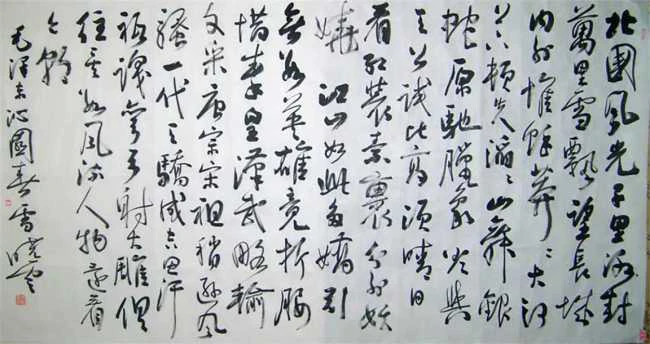 北國風光千里冰封
萬里雪飄望長城
内外惟餘莽々大河
上下頓失滔々山舞銀
蛇原馳臘象欲與
天公試比高須晴日
看紅裝素裹分外妖
嬈江山如此多嬌引
無數英雄競折腰
惜秦皇漢武略輸
文采唐宗宋祖稍遜風
騷一代天驕成吉思汗
祇識彎弓射大雕俱
往矣數風流人物還看
今朝
毛澤東沁園春雪